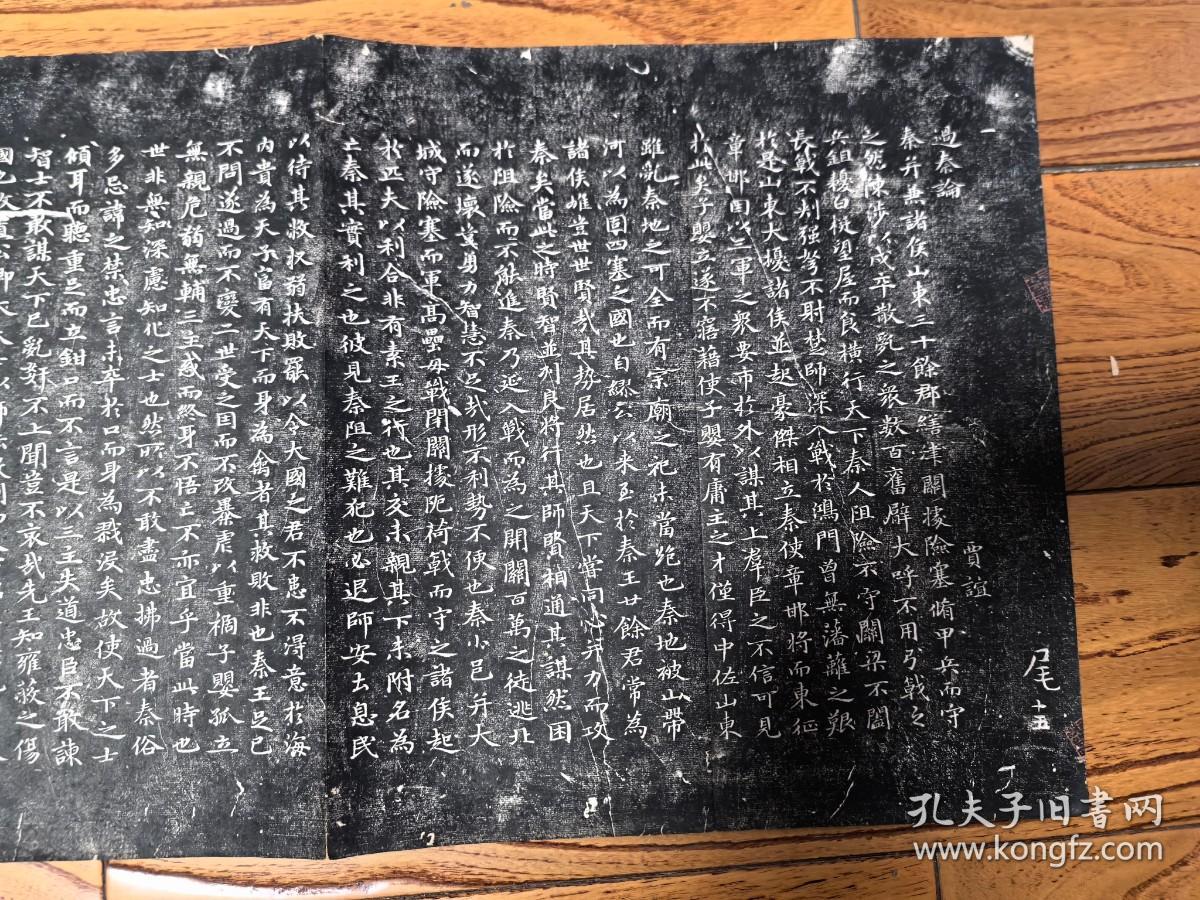 尾十五
過秦論
賈誼
秦并兼諸侯山東三十餘郡繕津關據險塞脩甲兵而守
之然陳涉以戍卒散亂之衆數百奮臂大呼不用弓戟之
兵鉏櫌白梃望屋而食橫行天下秦人阻險不守關梁不闔
長戟不刾强弩不射楚師深入戰於鴻門曾無藩離之艱
於是山東大擾諸侯並起豪傑相立秦使章邯將而東征
章邯因以三軍之衆要市於外以謀其上羣臣之不信可見
於此矣子嬰立遂不寤藉使子嬰有庸主之才僅得中佐山東
雖亂秦地之可全而有宗廟之祀未當絕也秦地被山帶
河以為固四塞之國也自繆公以來至於秦王廿餘君常為
諸侯雄豈世世賢哉其埶居然也且天下嘗同心并力而攻
秦矣當此之時賢智並列良將行其師賢相通其謀然困
於阻險而不能進秦乃延入戰而為之開關百萬之徒逃北
而遂壞豈勇力智慧不足哉形不利勢不便也秦小邑并大
城守險塞而軍高壘毋戰閉關據阨荷戟而守之諸侯起
於匹夫以利合非有素王之行也其交未親其下未附名為
亡秦其實利之也彼見秦阻之難犯也必退師安士息民
以待其救收弱扶敗罷以令大國之君不患不得意於海
內貴為天子富有天下而身為禽者其救敗非也秦王足已
不問遂過而不變二世受之因而不改暴虐以重禍子嬰孤立
無親危弱無輔三主惑而終身不悟亡不亦宜乎當此時也
世非無知深慮知化之士也然所以不敢盡忠拂過者秦俗
多忌諱之禁忠言未卒於口而身為戮沒矣故使天下之士
傾耳而聽重足而立鉗口而不言是以三主失道忠臣不敢諫
智士不敢謀天下已亂姧不上聞豈不哀哉先王知雍蔽之傷
國也故置公卿大夫
孔夫子旧书网
www.kongfz.com